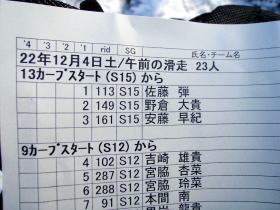 '4 '3 '2 '1 rid SG 氏名・チーム名
22年12月4日土/午前の滑走 23人
13カーブスタート（S15）から
1 113 S15 佐藤 弾
2 149 S15 野倉 大貴
3 161 S15 安藤 早紀
9カーブスタート（S12）から
4 102 S12 吉崎 雄貴
5 287 S12 宮脇 杏菜
6 288 S12 宮脇 玲菜
7 91 S12 本間 南